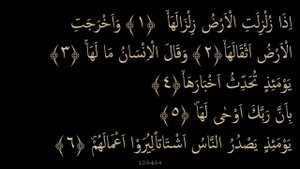 اِذَا زُلْزِلَتِ الْاَرْضُ زِلْزَالَهَاۙ ﴿١﴾ وَاَخْرَجَتِ
الْاَرْضُ اَثْقَالَهَاۙ ﴿٢﴾ وَقَالَ الْاِنْسَانُ مَا لَهَاۚ ﴿٣﴾
يَوْمَئِذٍ تُحَدِّثُ اَخْبَارَهَاۙ ﴿٤﴾
بِاَنَّ رَبَّكَ اَوْحٰى لَهَاۜ ﴿٥﴾
يَوْمَئِذٍ يَصْدُرُ النَّاسُ اَشْتَاتاًۙ لِيُرَوْا اَعْمَالَهُمْۜ ﴿٦﴾